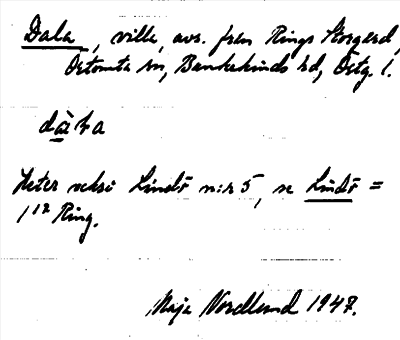 Dala, villa, avs. från Rings Storgård,
Örtomta sn, Bankekinds hd, Östg. l.
dà̱ɫa
Heter också Lindö n:r 5, se Lindö =
1¹² Ring.
Maja Nordlund 1947.